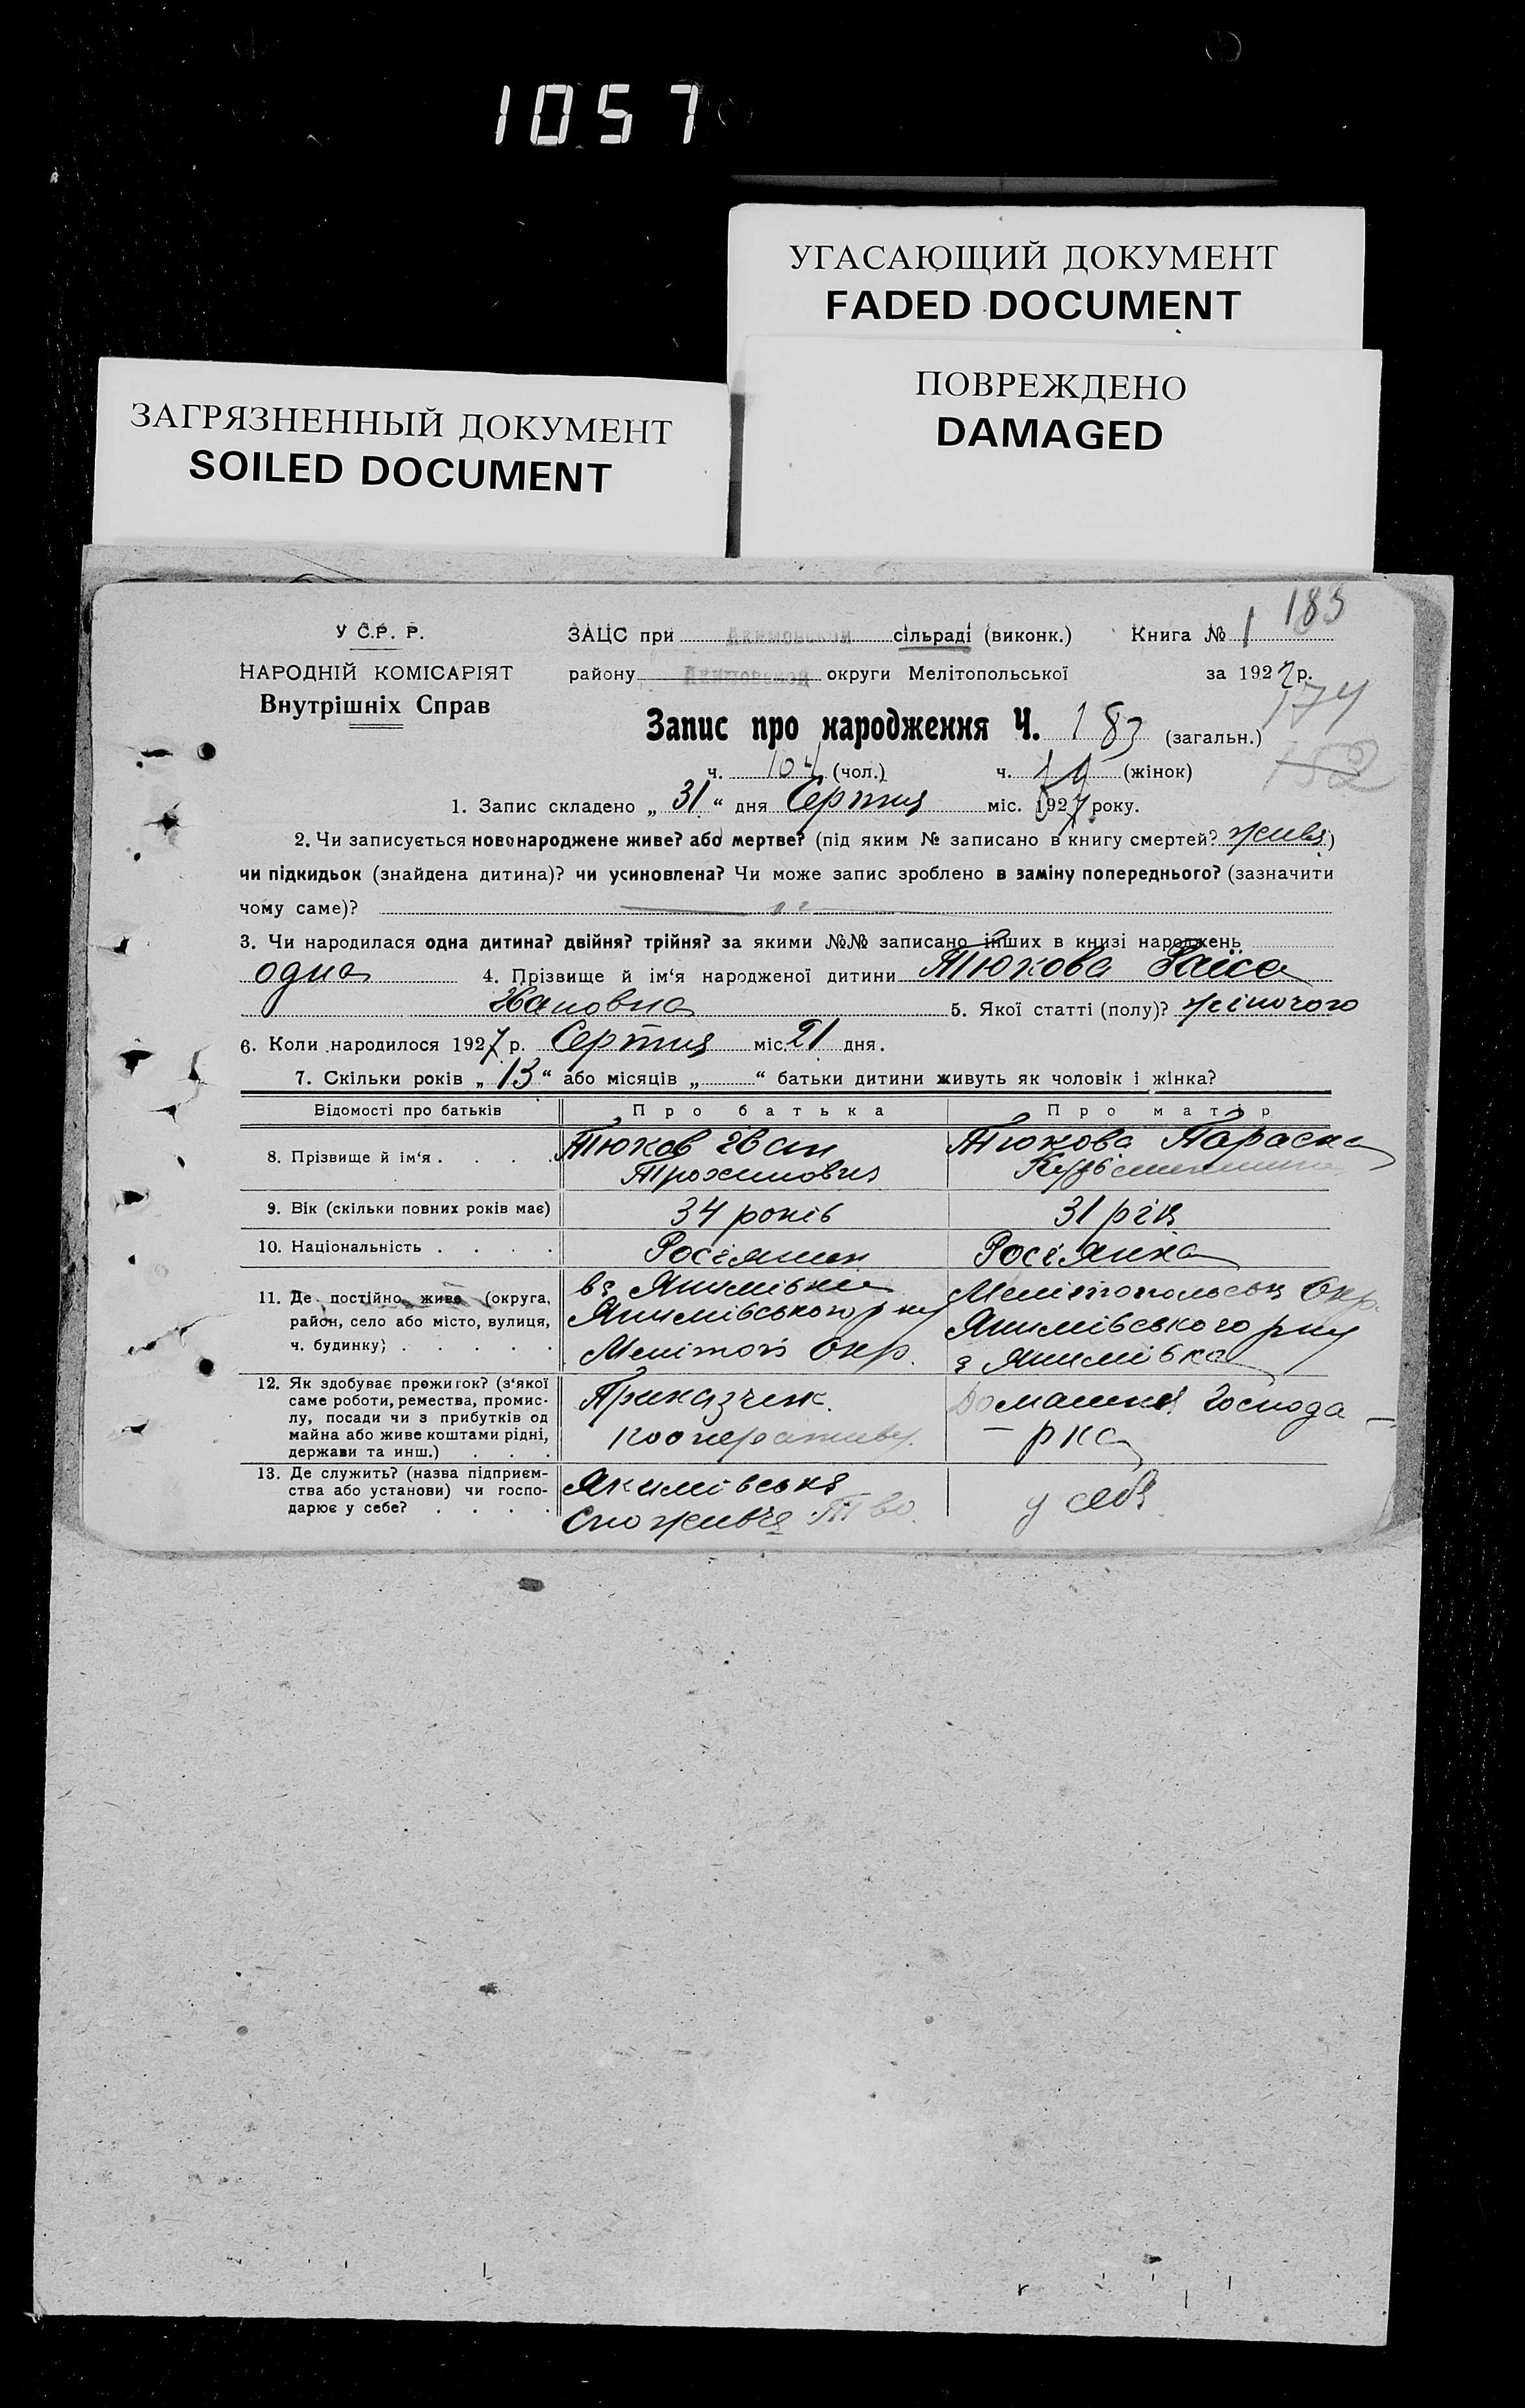 1057
УГАСАЮЩИЙ ДОКУМЕНТ
FADED DOCUMENT
ПОВРЕЖДЕНО
DAMAGED
ЗАГРЯЗНЕННЫЙ ДОКУМЕНТ
SOILED DOCUMENT
183
У С.Р. Р.
НАРОДНІЙ КОМІСАРІЯТ
Внутрішніх Справ
ЗАЦС при Акимовской сільраді (виконк.) Книга № 1
району Акимовской округи Мелітопольської за 1927 р.
174
Запис про народження Ч. 183 (загальн.)
152
ч. 104 (чол.) ч. 79 (жінок)
1. Запис складено „ 31 “ дня Серпня міс. 1927 року.
2. Чи записується новонароджене живе? або мертве? (під яким № записано в книгу смертей? живе)
чи підкидьок (знайдена дитина)? чи усиновлена? Чи може запис зроблено в заміну попереднього? (зазначити
чому саме)?
3. Чи народилася одна дитина? двійня? трійня? за якими №№ записано інших в книзі народжень
одна 4. Прізвище й ім‘я народженої дитини Тюкова Раїса
Івановна 5. Якої статті (полу)? жіночого
6. Коли народилося 1927 р. Серпня міс. 21 дня.
7. Скільки років „ 13 “ або місяців „ “ батьки дитини живуть як чоловік і жінка?
Відомості про батьків Про батька Про матір
8. Прізвище й ім‘я . . . . Тюков Іван Трохимович Тюкова Параска
9. Вік (скільки повних років має) 34 років 31 рік
10. Національність . . . . Росіянин Росіянка
11. Де постійно живе (округа,
район, село або місто, вулиця,
ч. будинку) . . . . .
в с Якимівки
Якимівського р ну
Мелітоп Окр.
Мелітопольськ Окр.
Якимівського рну
с Якимівка
12. Як здобуває прожиток? (з‘якої
саме роботи, ремества, промис-
лу, посади чи з прибутків од
майна або живе коштами рідні,
держави та инш.) . . .
Приказчик.
кооперативу.
Домашня господа
– рка
13. Де служить? (назва підприєм-
ства або установи) чи госпо-
дарює у себе? . . . .
Якимівське
Споживче Т во.
у себе